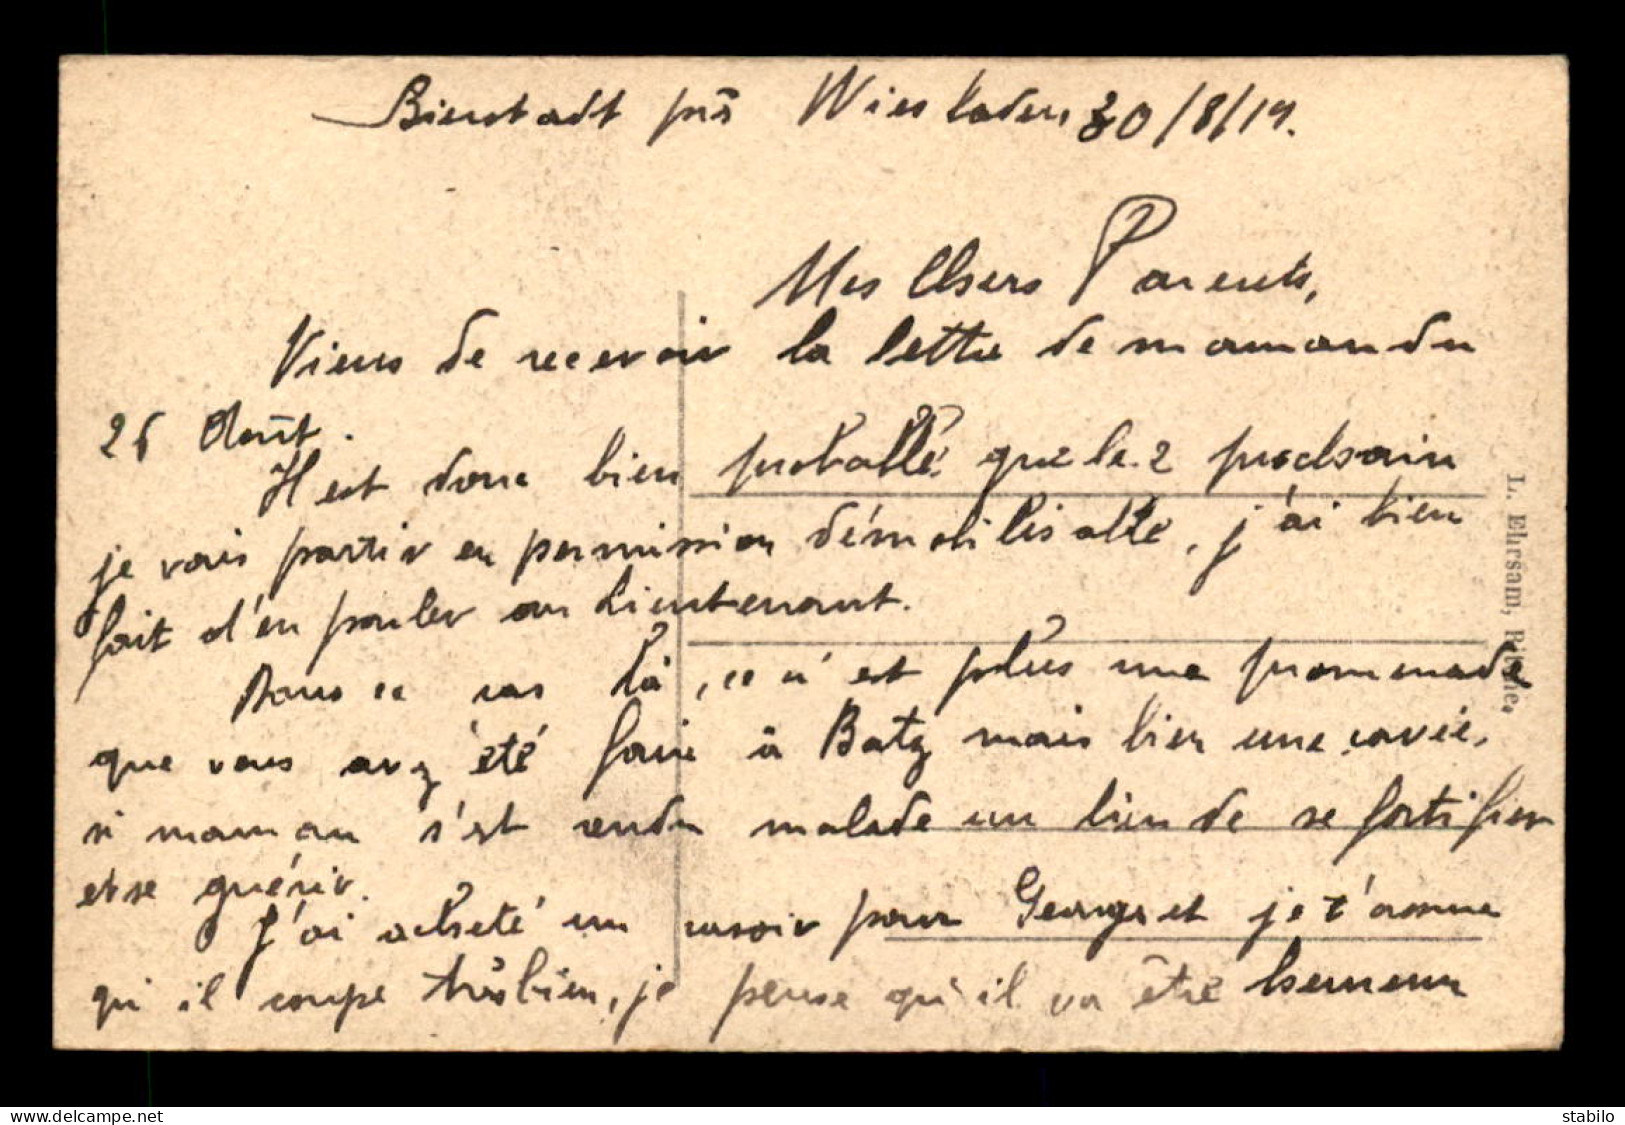 Bierstadt près Wiesbaden 30/8/19.
Mes Chers Parents,
Viens de recevoir la lettre de maman du
26 Août.
Il est donc bien probable que le 2 prochain
je vais partir en permission démobilisable, j'ai bien
fait d'en parler au Lieutenant.
Dans ce cas là, ce n'est plus une promenade
que vous avez été faire à Batz mais bien une corvée,
si maman s'est rendu malade au lieu de se fortifier
et se guérir.
J'ai acheté un rasoir pour Georges et je t'assure
qu'il coupe très bien, je pense qu'il va être heureux
L. Ehrsam,
www.delcampe.net
stabilo